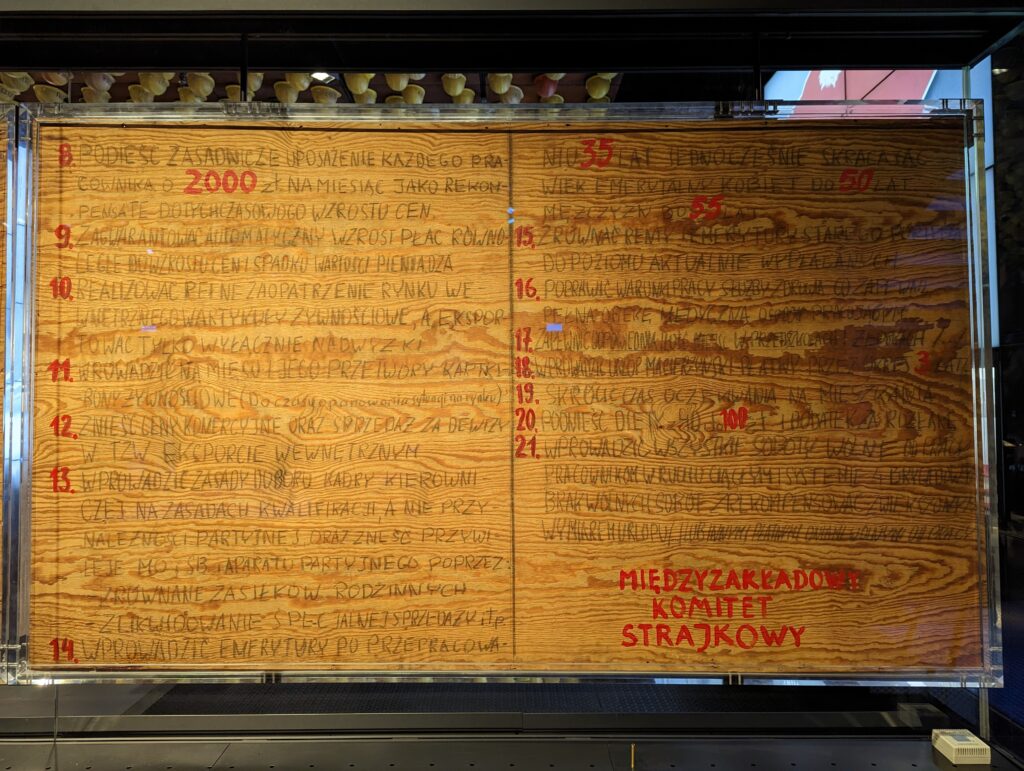 8. PODIEŚĆ ZASADNICZE UPOSAŻENIE KAŻDEGO PRA-
COWNIKA O 2000 ZŁ NA MIESIĄC JAKO REKOM-
PENSATĘ DOTYCHCZASOWOGO WZROSTU CEN.
9. ZAGWARANTOWAĆ AUTOMATYCZNY WZROST PŁAC RÓWNO
LEGLE DO WZROSTU CEN I SPADKU WARTOŚCI PIENIĄDZA
10. REALIZOWAĆ PEŁNE ZAOPATRZENIE RYNKU WE
WNĘTRZNEGO W ARTYKUŁY ŻYWNOŚCIOWE, A EKSPOR-
TOWAĆ TYLKO WYŁĄCZNIE NADWYŻKI
11. WROWADZIĆ NA MIĘSO I JEGO PRZETWORY KARTKI-
BONY ŻYWNOŚCIOWE (Do czasu opanowania sytuacji na rynku)
12. ZNIEŚĆ CENY KOMERCYJNE ORAZ SPRZEDAŻ ZA DEWIZY
W TZW EKSPORCIE WEWNĘTRZNYM
13. WPROWADZIĆ ZASADY DOBORU KADRY KIEROWNI
CZEJ NA ZASADACH KWALIFIKACJI, A NIE PRZY-
NALEŻNOŚCI PARTYJNEJ ORAZ ZNIEŚĆ PRZYWI-
LEJE MO i SB i APARATU PARTYJNEGO POPRZEZ:
- ZRÓWNANE ZASIŁKÓW RODZINNYCH
- ZLIKWIDOWANIE SPECJALNEJ SPRZEDAŻY itp
14. WPROWADZIĆ EMERYTURY PO PRZEPRACOWA-
NIU 35 LAT JEDNOCZEŚNIE SKRACAJĄC
WIEK EMERYTALNY KOBIET DO 50 LAT
MĘŻCZYZN DO 55 LAT
15. ZRÓWNAĆ RENTY I EMERYTURY STAREGO PORTFELA
DO POZIOMU AKTUALNIE WYPŁACANYCH
16. POPRAWIĆ WARUNKI PRACY SŁUŻBY ZDROWIA CO ZAPEWNI
PEŁNĄ OPIEKĘ MEDYCZNĄ OSOBOM PRACUJĄCYM
17. ZAPEWNIĆ ODPOWIEDNIĄ ILOŚĆ MIEJSC W PRZEDSZKOLACH I ŻŁOBKACH
18. WPROWADZIĆ URLOP MACIERZYŃSKI PŁATNY PRZEZ OKRES 3 LATA
19. SKRÓCIĆ CZAS OCZEKIWANIA NA MIESZKANIA
20. PODNIEŚĆ DIETY Z 40 100 ZŁ I DODATEK ZA ROZŁĄKĘ
21. WPROWADZIĆ WSZYSTKIE SOBOTY WOLNE
PRACOWNIKOM W RUCHU CIĄGŁYM I SYSTEMIE 4 BRYGADOWYM
BRAK WOLNYCH SOBÓT ZREKOMPENSOWAĆ ZWIĘKSZONYM
WYMIAREM URLOPU LUB INNYMI PŁATNYMI DNIAMI WOLNYMI OD PRACY
MIĘDZYZAKŁADOWY
KOMITET
STRAJKOWY